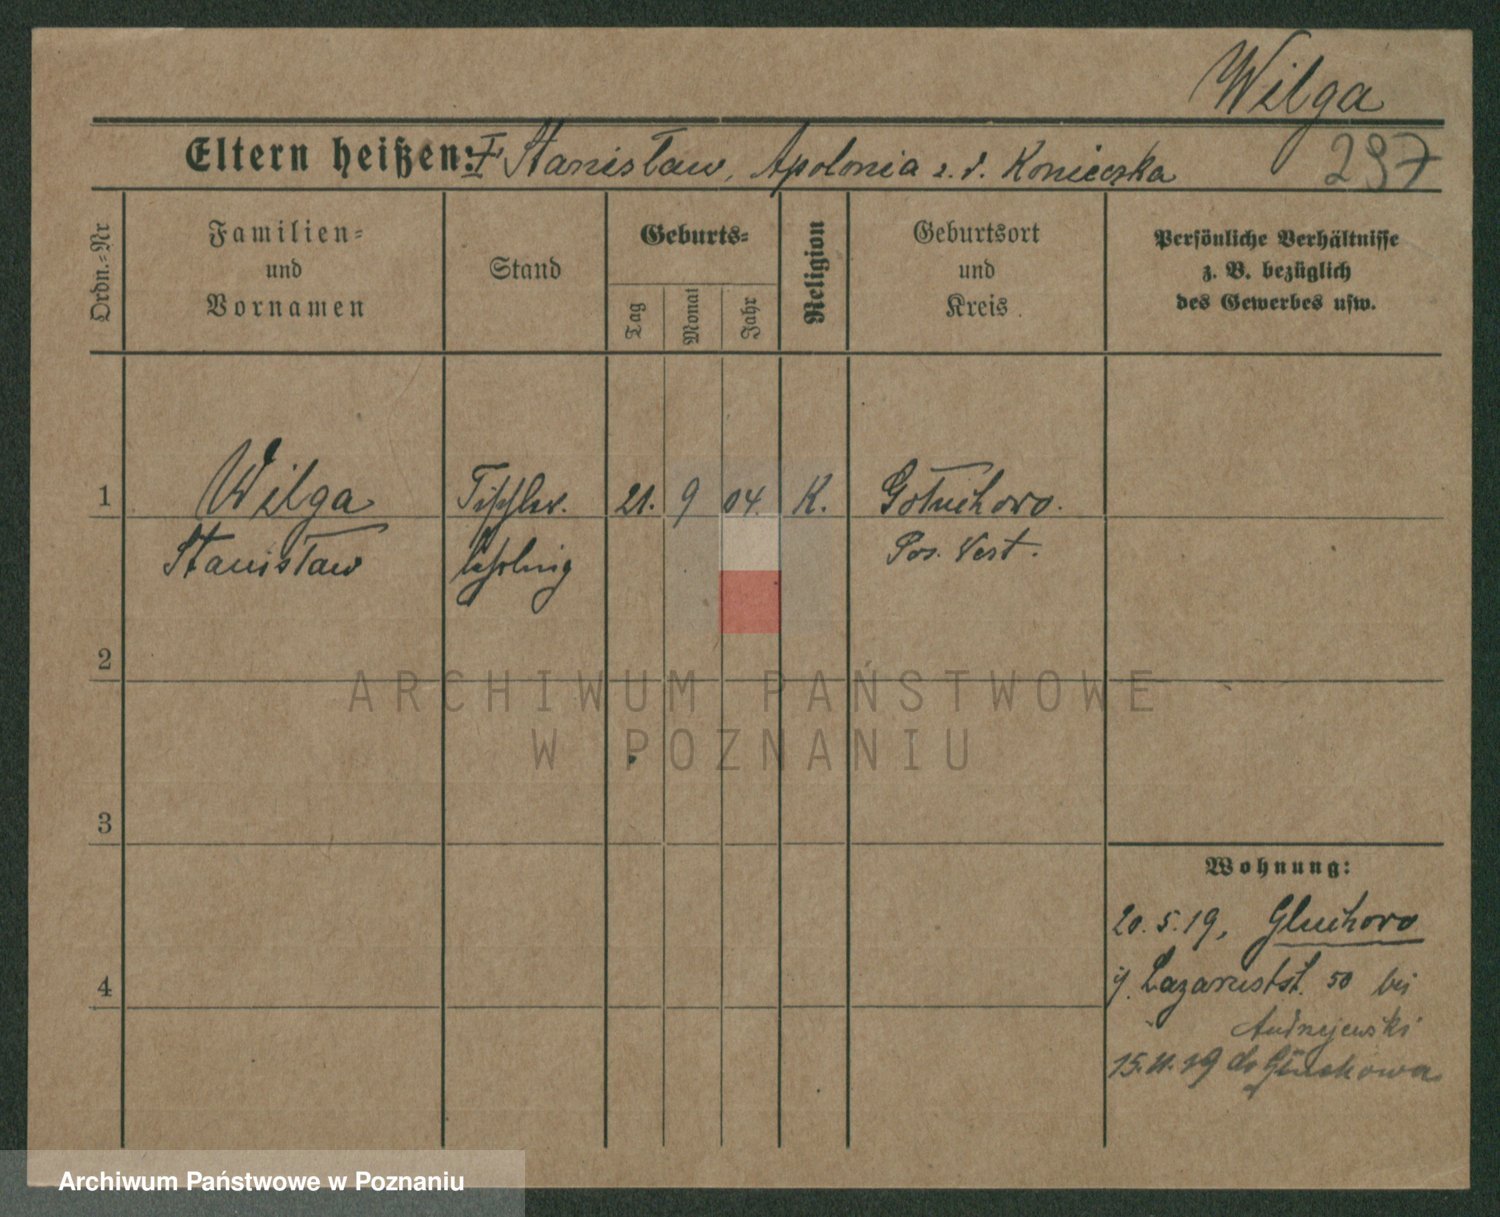 Wilga
237
Eltern heißen: Stanisław, Apolonia z. d. Konieczka
Ordn.=Nr
Familien=
und
Vornamen
Stand
Geburts=
Tag
Monat
Jahr
Religion
Geburtsort
und
Kreis
Persönliche Verhältnisse
z. B. bezüglich
des Gewerbes usw.
1
Wilga Tischler. 21. 9 04. K. Głuchowo.
Stanisław lehrling Pos. West.
2
ARCHIWUM PAŃSTWOWE
W POZNANIU
3
Wohnung:
20.5.19, Gluchovo
4
Lazarustst. 50 bei
Andrzejewski
15.11.19 do Głuchowa
Archiwum Państwowe w Poznaniu